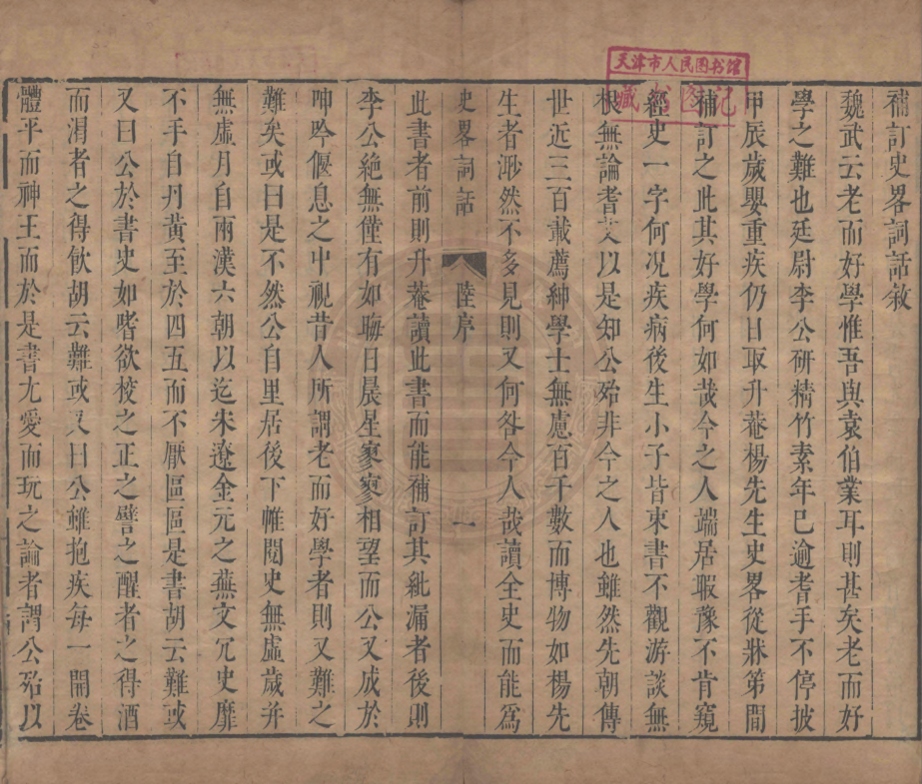 補訂史畧詞話敘
魏武云老而好學惟吾與袁伯業耳則甚矣老而好
學之難也廷尉李公研精竹素年已逾耆手不停披
甲辰歲嬰重疾仍日取升菴楊先生史畧從牀第間
補訂之此其好學何如哉今之人端居暇豫不肯窺
經史一字何況疾病後生小子皆束書不觀游談無
根無論耆艾以是知公殆非今之人也雖然先朝傳
世近三百載薦紳學士無慮百千數而博物如楊先
生者渺然不多見則又何咎今人哉讀全史而能爲
史畧詞話 陸序 一
此書者前則升菴讀此書而能補訂其紕漏者後則
李公絶無僅有如晦日晨星寥寥相望而公又成於
呻吟偃息之中視昔人所謂老而好學者則又難之
難矣或曰是不然公自里居後下帷閱史無虛歲并
無虛月自兩漢六朝以迄宋遼金元之蕪文冗史靡
不手自丹黃至於四五而不厭區區是書胡云難或
又曰公於書史如嗜欲校之正之譬之醒者之得酒
而渴者之得飲胡云難或又曰公雖抱疾每一開卷
體平而神王而於是書尤愛而玩之論者謂公殆以
天津市人民图书馆
藏书图记